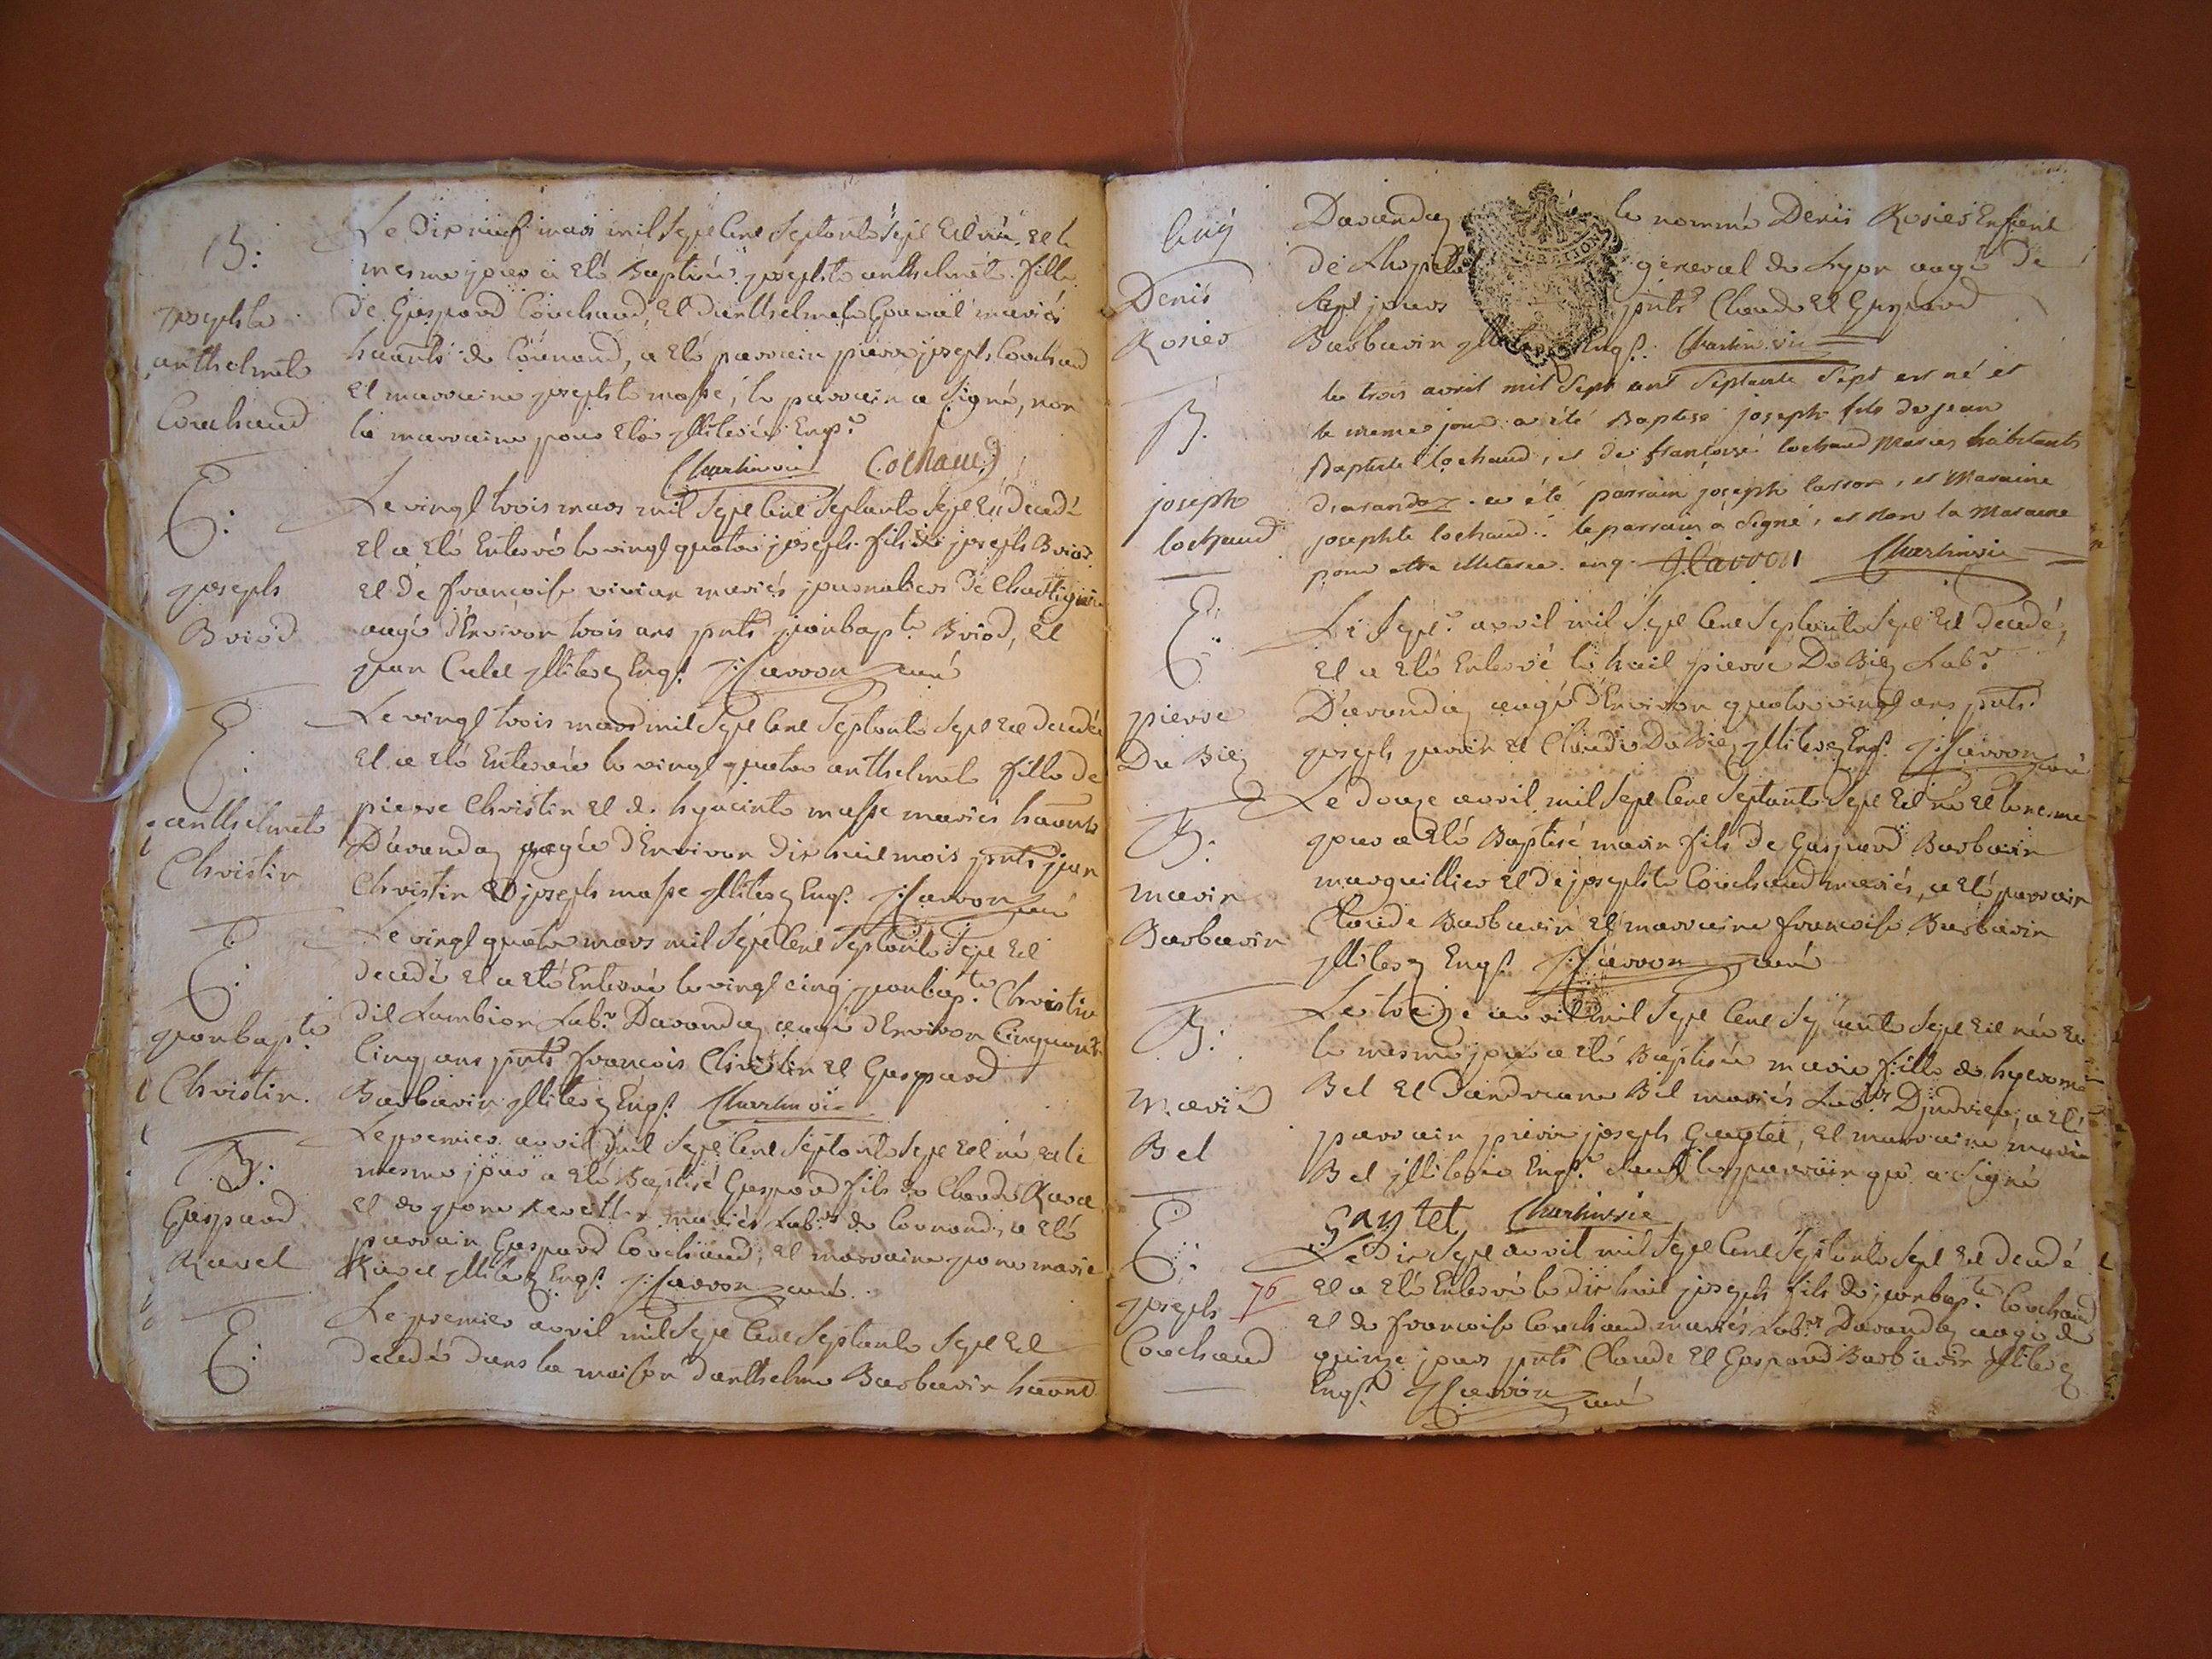 B:
Josephte
anthelmette
Couchaud
Le Dix neuf mars mil Sept Cent Septante Sept Est née, et le
mesme jour a Eté Baptisée josephte anthelmette fille
De Gaspard Couchaud, Et Danthelmette mariés
haants de Cormand, a Eté parrain pierre joseph Couchaud
Et marraine josephte masse, le parrain a Signé, non
la marraine pour Etre jllitérée Enqs
Charlin vic Cochaud
E:
joseph
Briod
Le vingt trois mars mil Sept Cent Septante Sept Est Decedé
Et a Eté Enterré le vingt quatre joseph fils de joseph Briod
Et De francoise vivian mariés journaliers De
aagé d'Environ trois ans pnts jeanbapte Briod, Et
jean jllites Enqs J: curé
E:
anthelmette
Christin
Le vingt trois mars mil Sept Cent Septante Sept Est Decedée
Et a Eté Enterrée le vingt quatre anthelmette fille de
pierre Christin Et de hyacinte masse mariés haants
Daranday aagée d'Environ Dix huit mois pnts jean
Christin Et joseph masse jllites Enqs J: curé
E:
jeanbapte
Christin.
Le vingt quatre mars mil Sept Cent Septante Sept Est
decedé Et a Eté Enterré le vingt cinq jeanbapte Christin
dit Lambion Labr Daranday aagé d'Environ Cinquante
Cinq ans pnts francois Christin Et Gaspard
Barbarin jllites Enqs Charlin vic
B:
Gaspard
Ravet
Le premier avril mil Sept Cent Septante Sept Est né Et le
mesme jour a Eté Baptisé Gaspard fils de Claude Ravet
Et de jeanne mariés Labrs de Cormand, a Eté
parrain Gaspard Couchaud, Et marraine jeanne marie
Ravet jllites Enqs J: curé
E:
Le premier avril mil Sept Cent Septante Sept Est
decedé dans la maison danthelme Barbarin haant
Denis
Rosier
Daranday le nommé Denis Rosier Enfant
De Lhopital general de Lyon aagé De
Sept jours pnts Claude Et Gaspard
Barbarin jllites Enqs. Charlin vic
B.
joseph
Cochaud
le trois avril mil Sept cent Septante Sept est né et
le meme jour a été Baptisé joseph fils de jean
Baptiste Cochaud, et de francoise Cochaud Mariés habitants
darandaz. a été parrain joseph , et Maraine
josephte Cochaud. le parrain a Signé, et non la Maraine
pour etre illiterée. enq. Charlin vic
E:
pierre
Du Biez
Le Sept avril mil Sept Cent Septante Sept Est Decedé,
Et a Eté Enterré le huit pierre Du Biez Labr
Daranday aagé d'Environ quatre vingt ans pnts
joseph Et Claude Du Biez jllites Enqs J: curé
B:
marin
Barbarin
Le douze avril mil Sept Cent Septante Sept Est né Et le mesme
jour a Eté Baptisé marin fils De Gaspard Barbarin
marguillier Et De josephte Couchaud mariés, a Eté parrain
Claude Barbarin Et marraine francoise Barbarin
jllites Enqs J: curé
B:
Marie
Bel
Le treize avril mil Sept Cent Septante Sept Est née Et
le mesme jour a Eté Baptisée marie fille de hyerome
Bel Et Dandreanne Bel mariés Labrs , a Eté
parrain pierre joseph Gaytet, Et marraine marie
Bel jllitérée Enqs Sauf le parrain qui a Signé
gaytet Charlin vic
E:
joseph 76
Couchaud
Le Dix Sept avril mil Sept Cent Septante Sept Est decedé
Et a Eté Enterré le dix huit joseph fils de jeanbapte Couchaud
Et de francoise Couchaud mariés Labrs Daranday aagé de
quinze jours pnts Claude Et Gaspard Barbarin jllites
Enqs J: curé